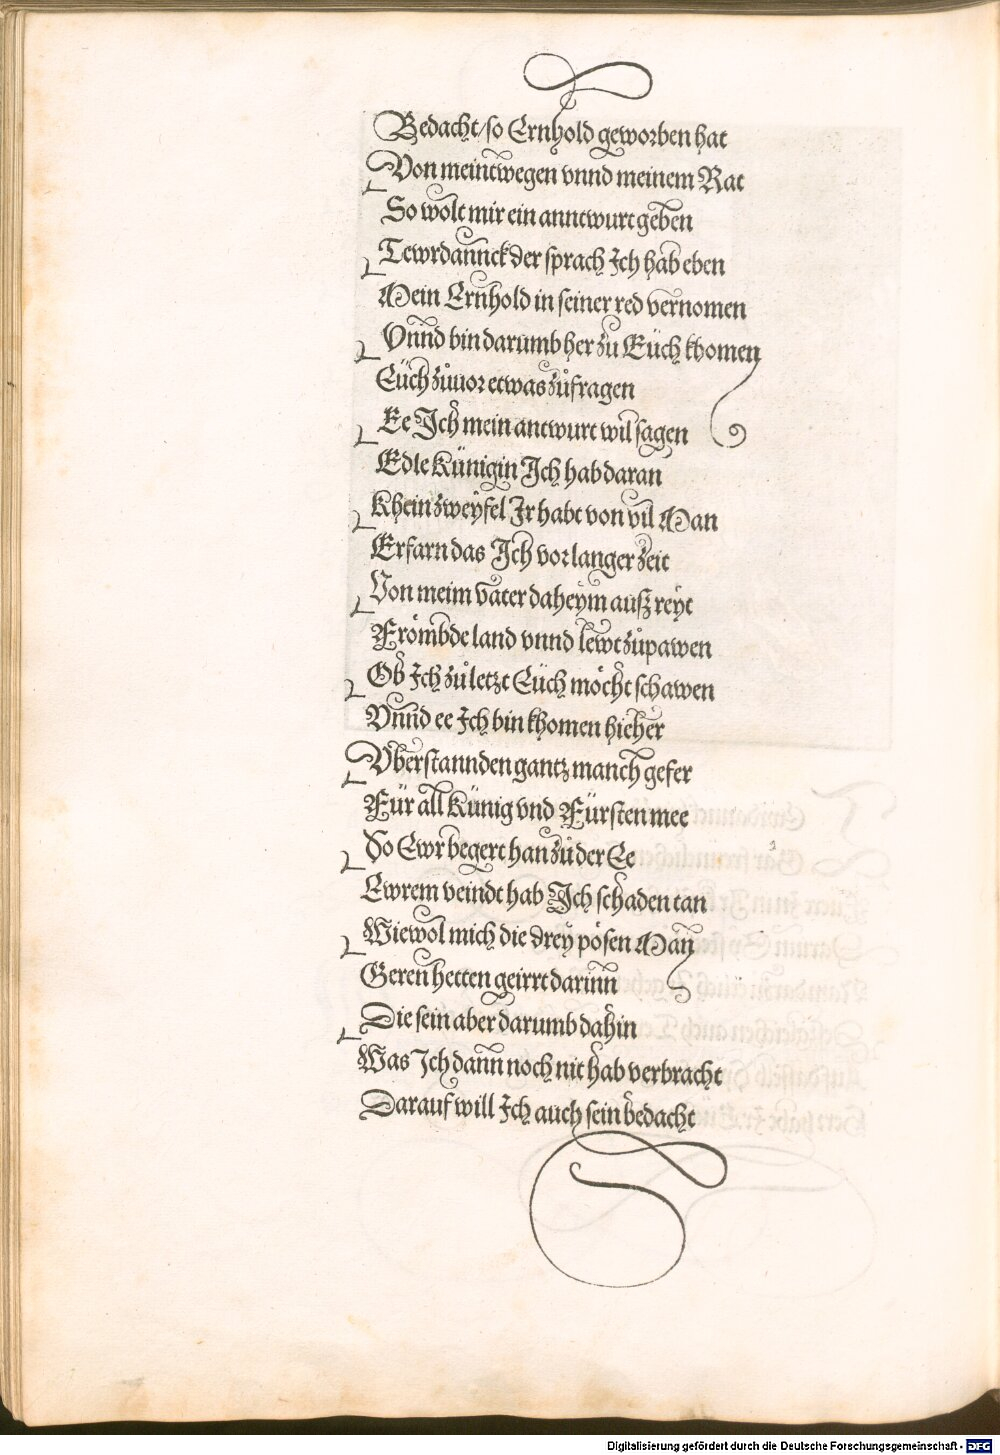 Bedacht / so Ernhold geworben hat
Von meintwegen vnnd meinem Rat
So wolt mir ein anntwurt geben
Tewrdannck der sprach Ich hab eben
Mein Ernhold in seiner red vernomen
Vnnd bin darumb her zu Eüch khomen
Eüch zůuor etwas zůfragen
Ee Ich mein antwurt wil sagen
Edle Künigin Ich hab daran
Khein zweyfel Ir habt von vil Man
Erfarn das Ich vor langer zeit
Von meim vater daheym außreyt
Frömbde land vnnd lewt zůpawen
Ob Ich zůletzt Eüch möcht schawen
Vnnd ee Ich bin khomen hieher
Vberstannden gantz manch gefer
Für all Künig vnd Fürsten mee
So Ewr begert han zů der Ee
Ewrem veindt hab Ich schaden tan
Wiewol mich die drey pösen Man
Geren hetten geirrt darinn
Die sein aber darumb dahin
Was Ich dann noch nit hab verbracht
Darauf will Ich auch sein bedacht
Digitalisierung gefördert durch die Deutsche Forschungsgemeinschaft - DFG